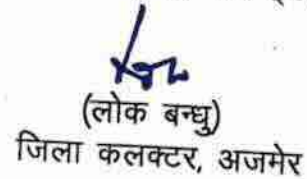 (लोक बन्धु)
जिला कलक्टर, अजमेर